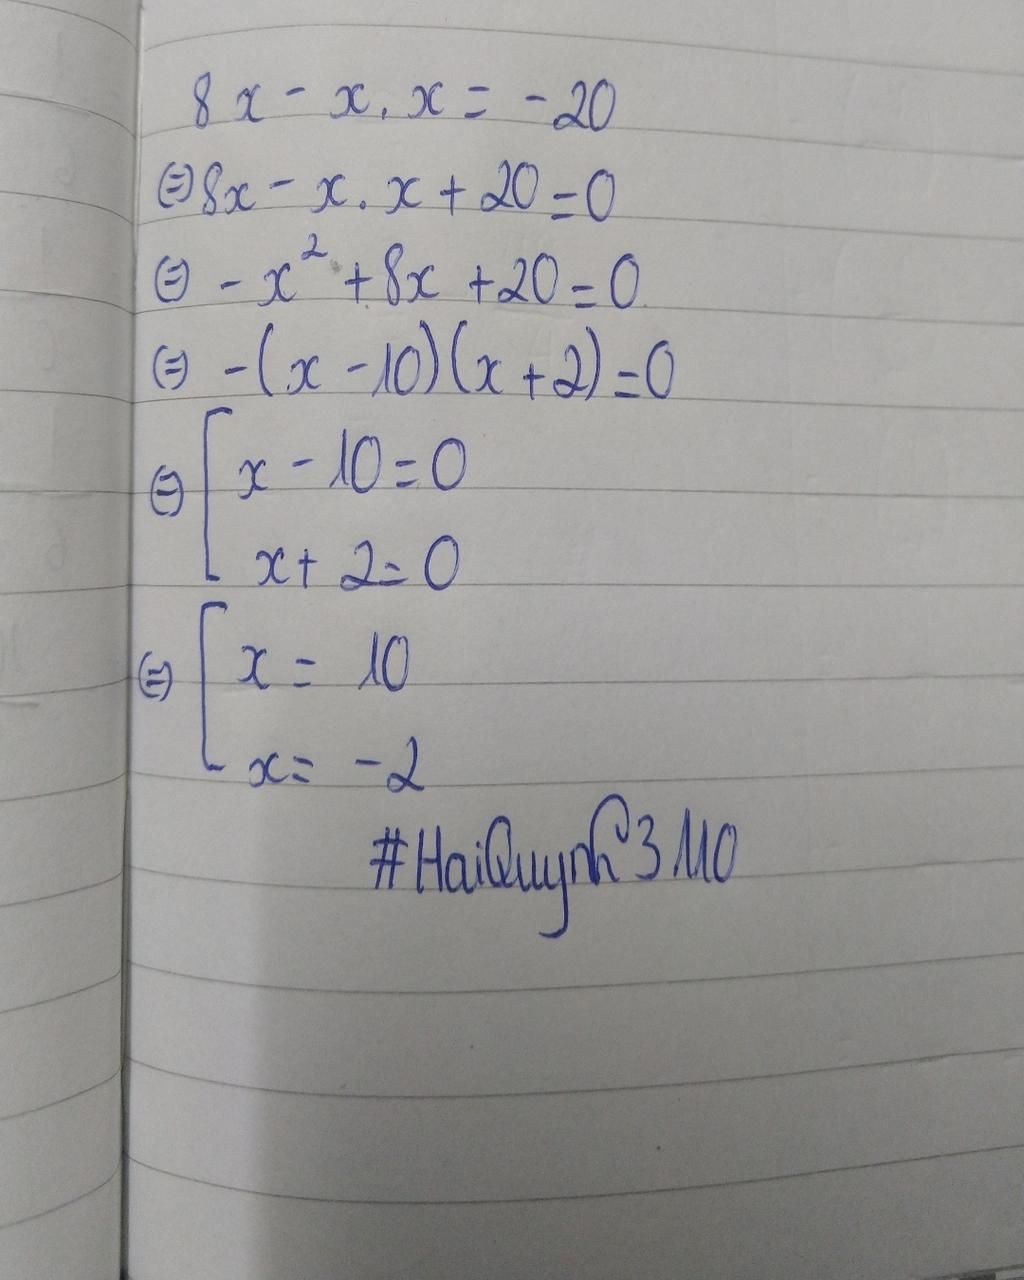 8x - x. x = -20
⇔ 8x - x. x + 20 = 0
⇔ -x² + 8x + 20 = 0
⇔ -(x - 10)(x + 2) = 0
⇔ [ x - 10 = 0
x + 2 = 0
⇔ [ x = 10
x = -2
#HaiQuynh3110